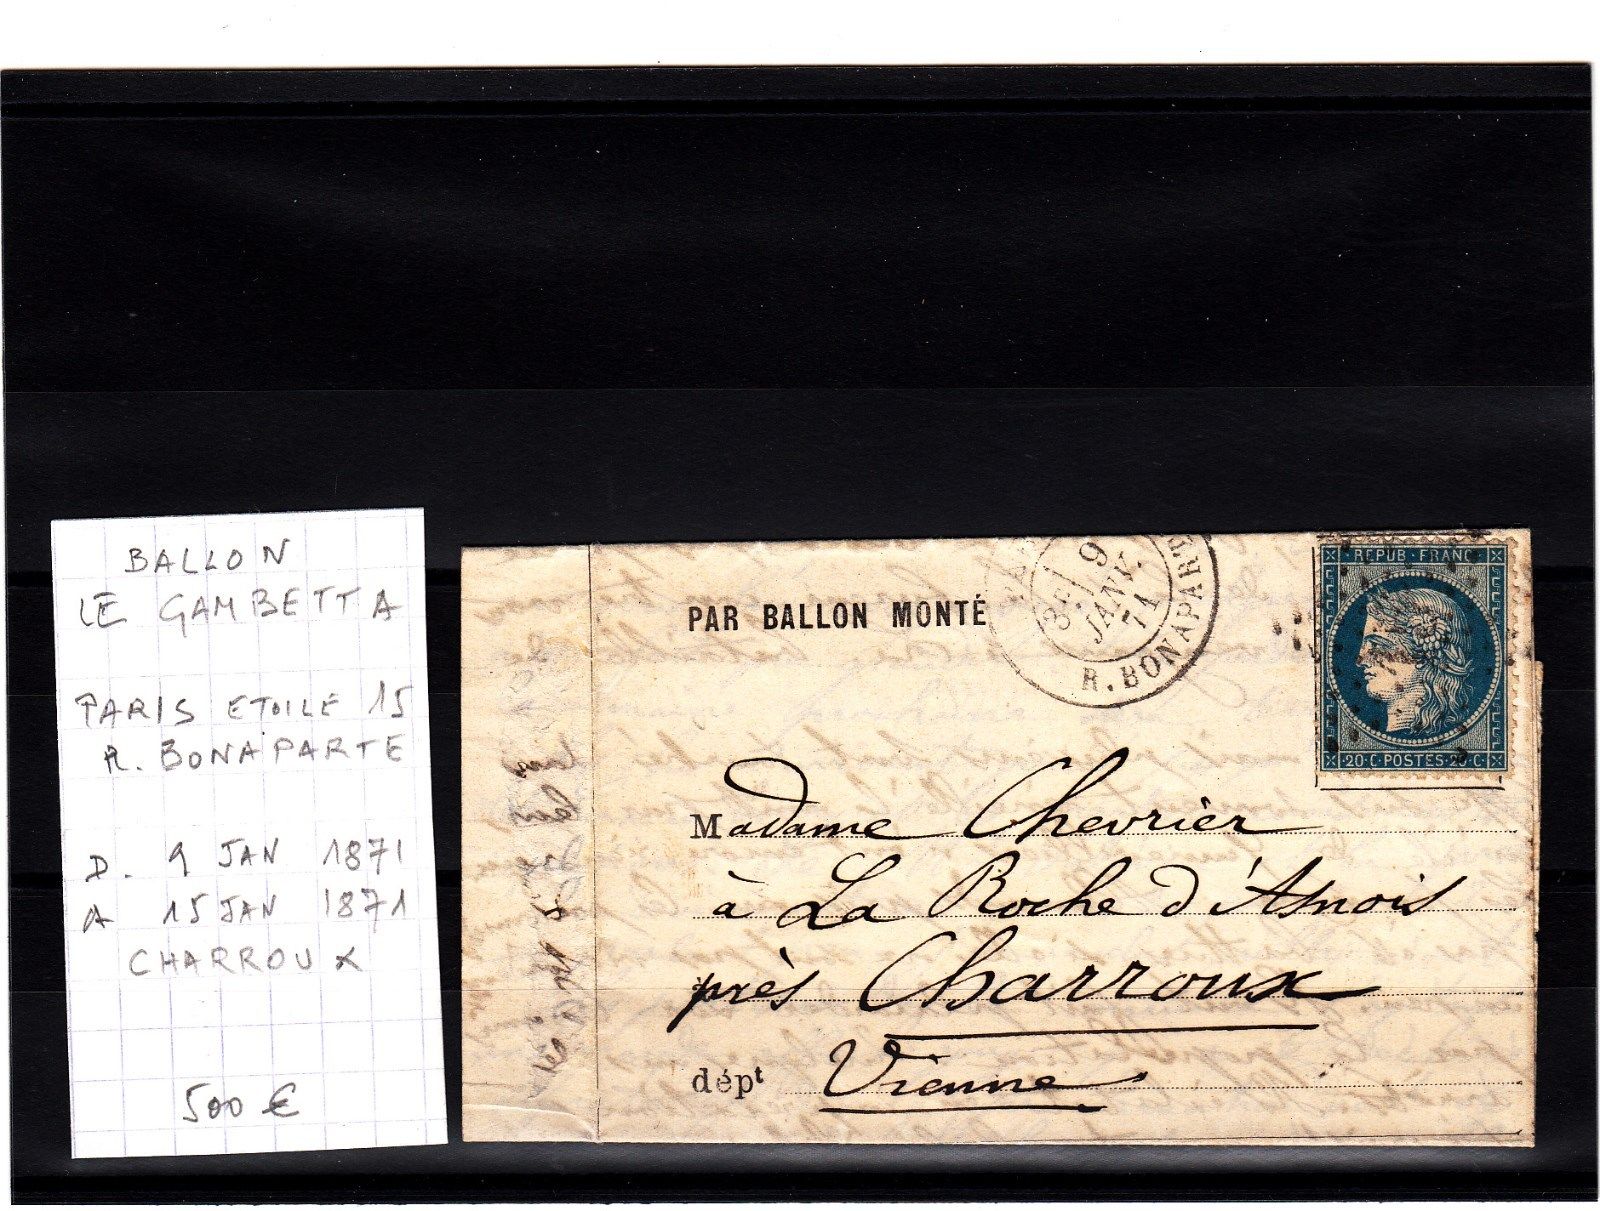 BALLON
LE GAMBETTA
PARIS ETOILE 15
R. BONAPARTE
D. 9 JAN 1871
A 15 JAN 1871
CHARROUX
500 €
PAR BALLON MONTÉ
9
JANV.
71
R. BONAPART
REPUB · FRANC
20 · C · POSTES · 20 · C ·
Madame Chevrier
à La Roche d'Asnois
près Charroux
dépt Vienne